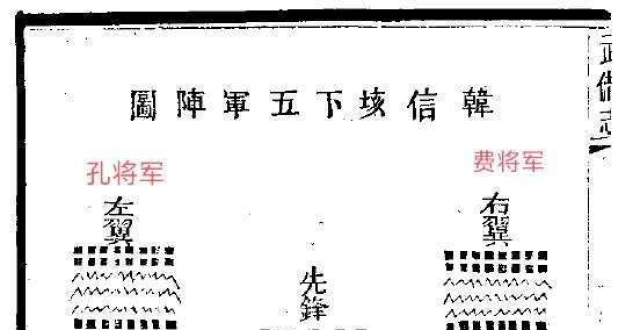 韓信垓下五軍陣圖
武備志
費将军
右翼
先鋒
孔将军
左翼